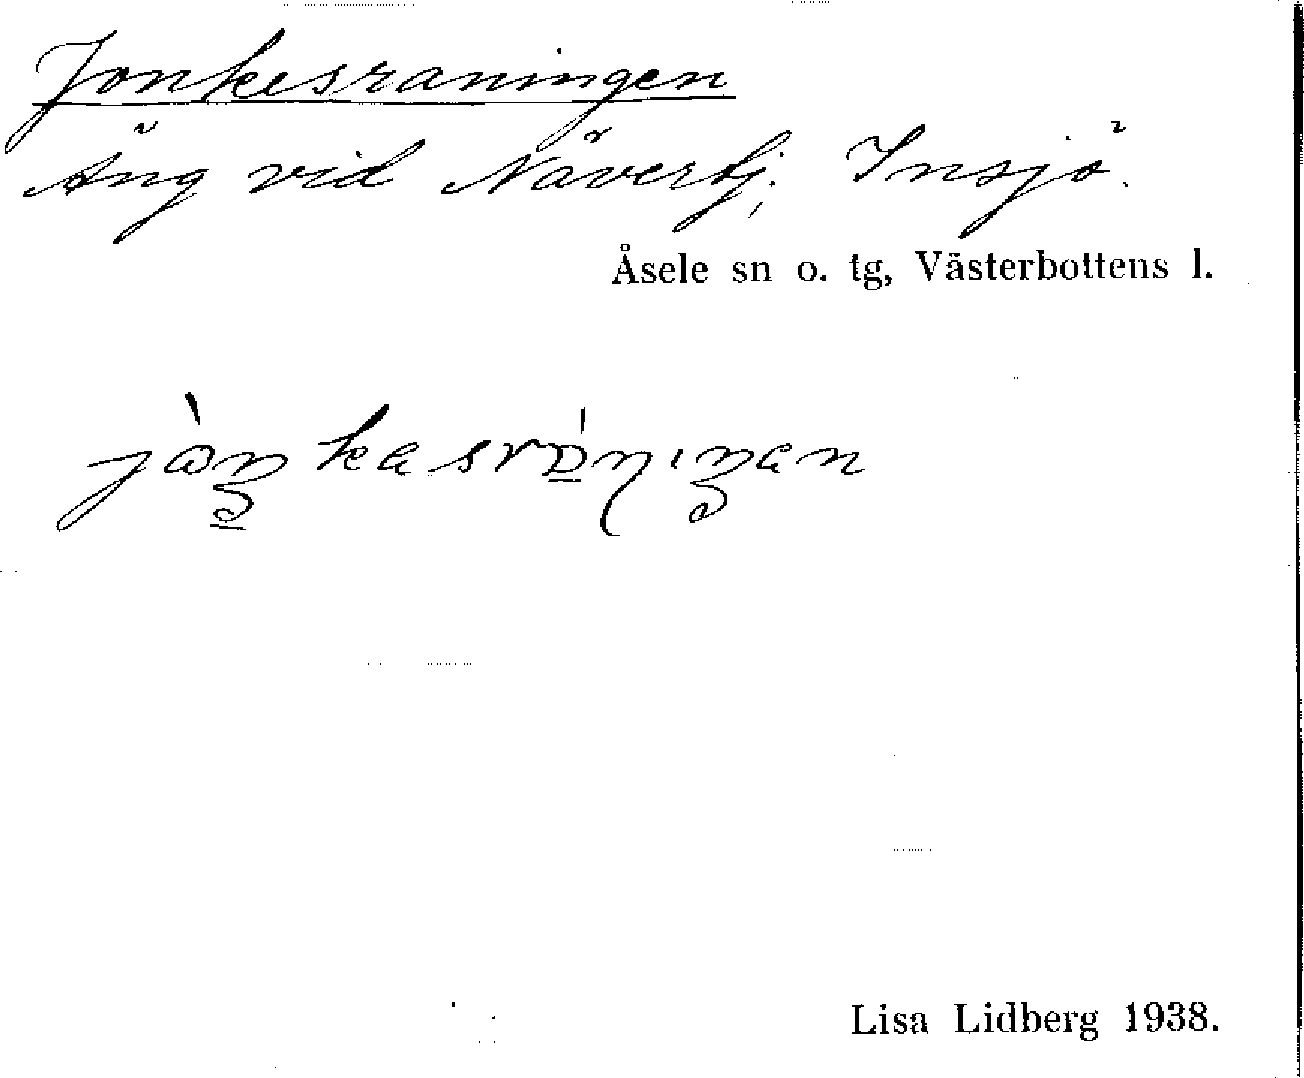 Jonkesraningen
Äng vid Nävertj., Insjö.
Åsele sn o. tg, Västerbottens l.
Lisa Lidberg 1938.